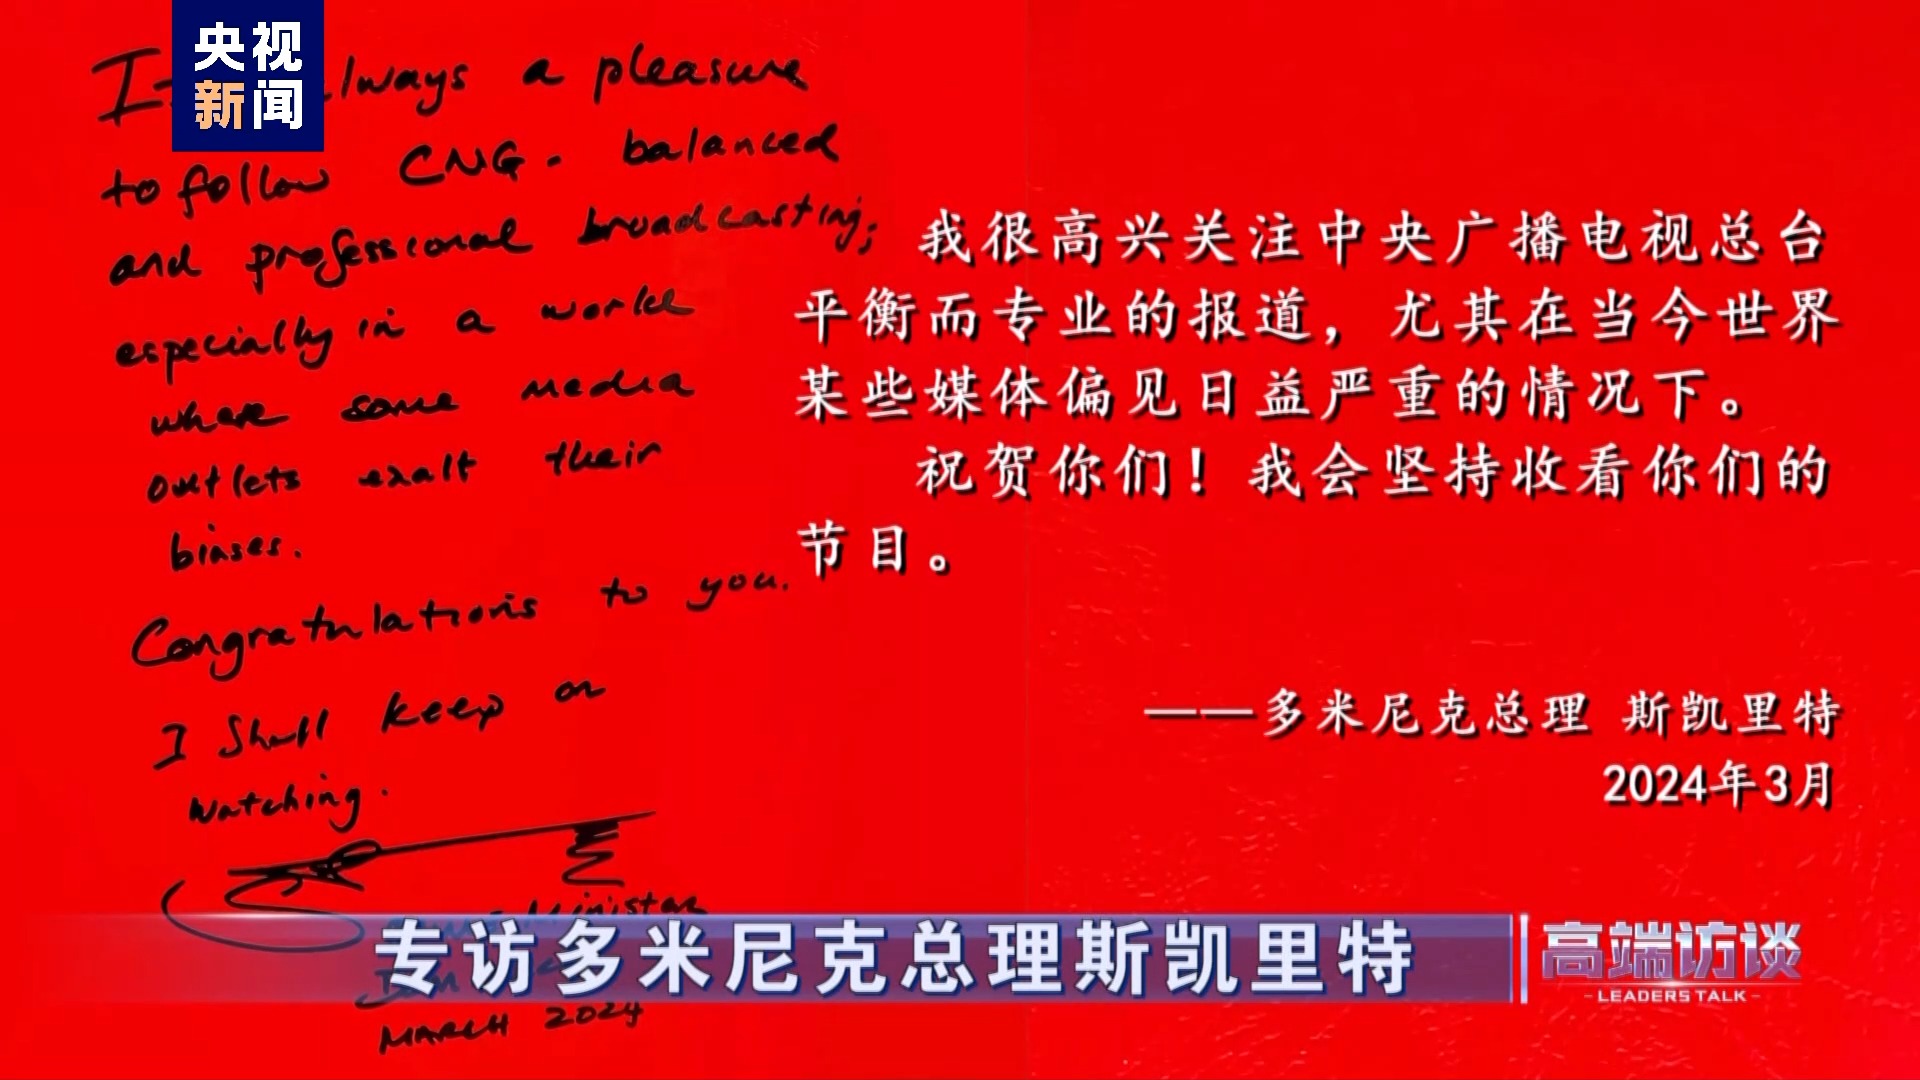 央视
新闻
always a pleasure
to follow CMG. balanced
and professional broadcasting;
especially in a world
where some media
outlets exalt their
biases.
Congratulations to you.
I Shall keep on
watching.
Minister
MARCH 2024
我很高兴关注中央广播电视总台
平衡而专业的报道，尤其在当今世界
某些媒体偏见日益严重的情况下。
祝贺你们！我会坚持收看你们的
节目。
——多米尼克总理 斯凯里特
2024年3月
专访多米尼克总理斯凯里特
高端访谈
-LEADERS TALK-